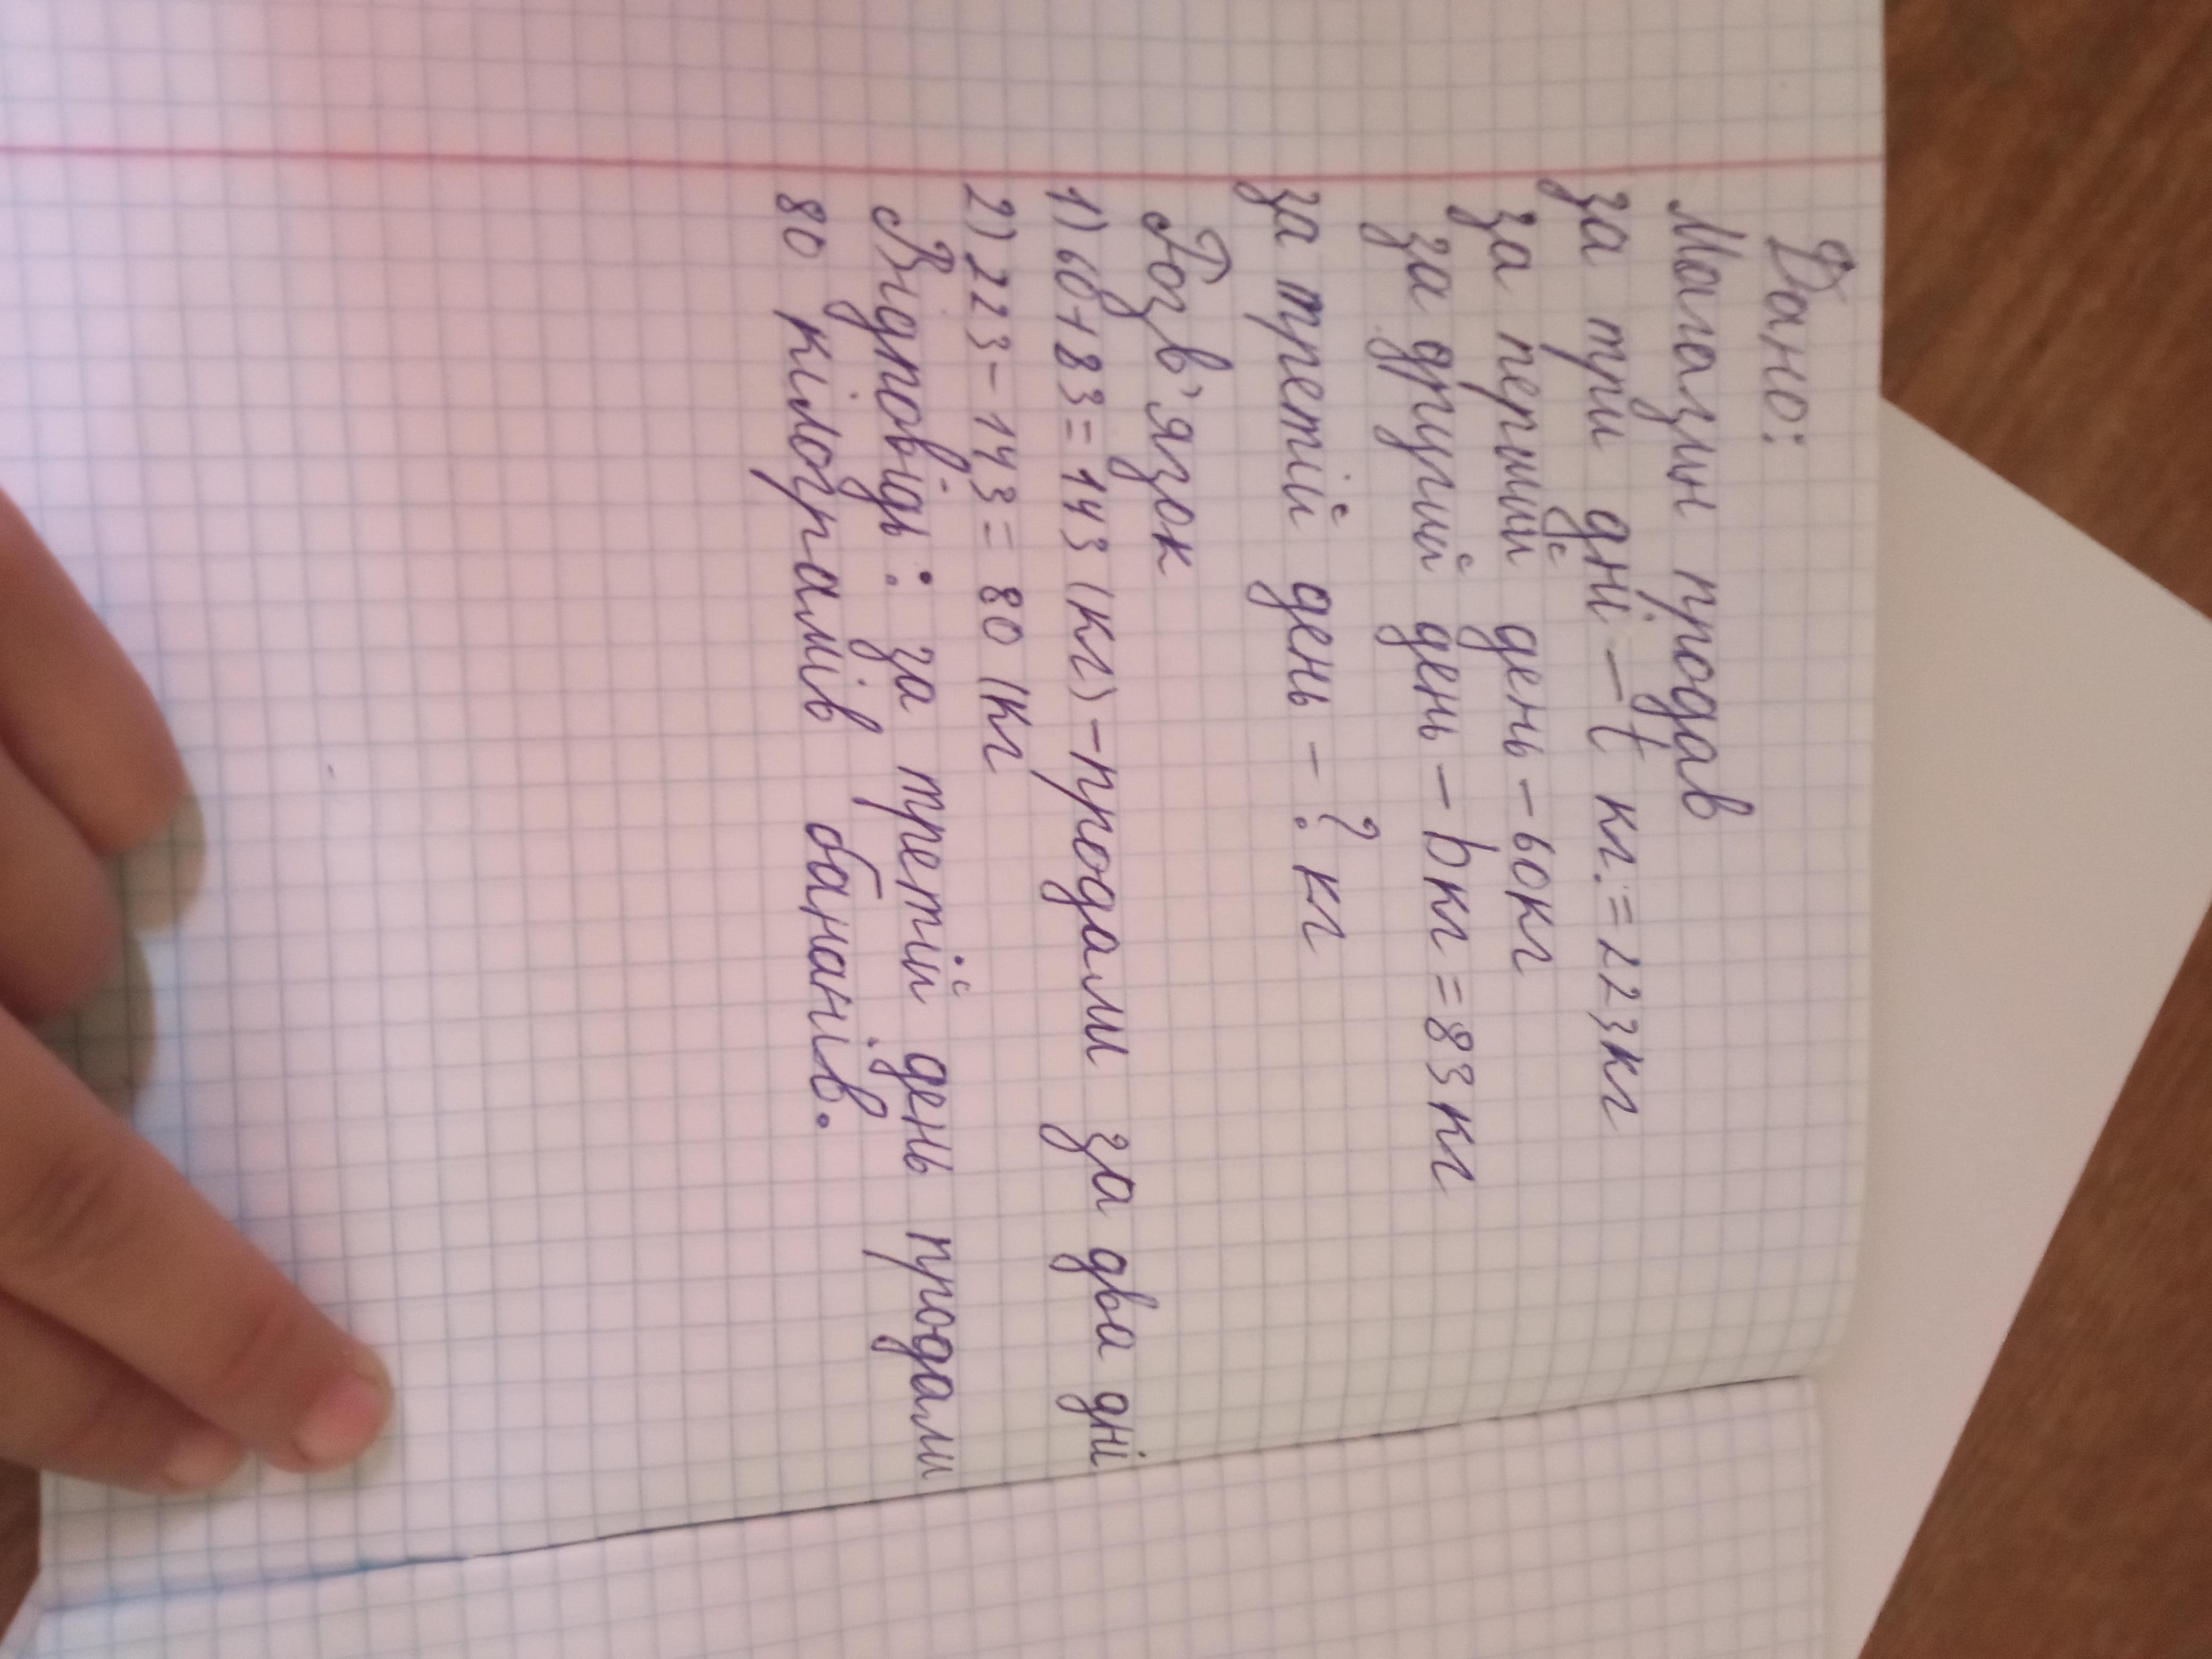 Дано:
Магазин продав
за три дні - t кг. = 223кг
за перший день - 60кг
за другий день - bкг = 83кг
за третій день - ? кг
Розв'язок
1) 60+83=143 (кг) - продали за два дні
2) 223-143= 80 (кг
Відповідь: за третій день продали
80 кілограмів бананів.